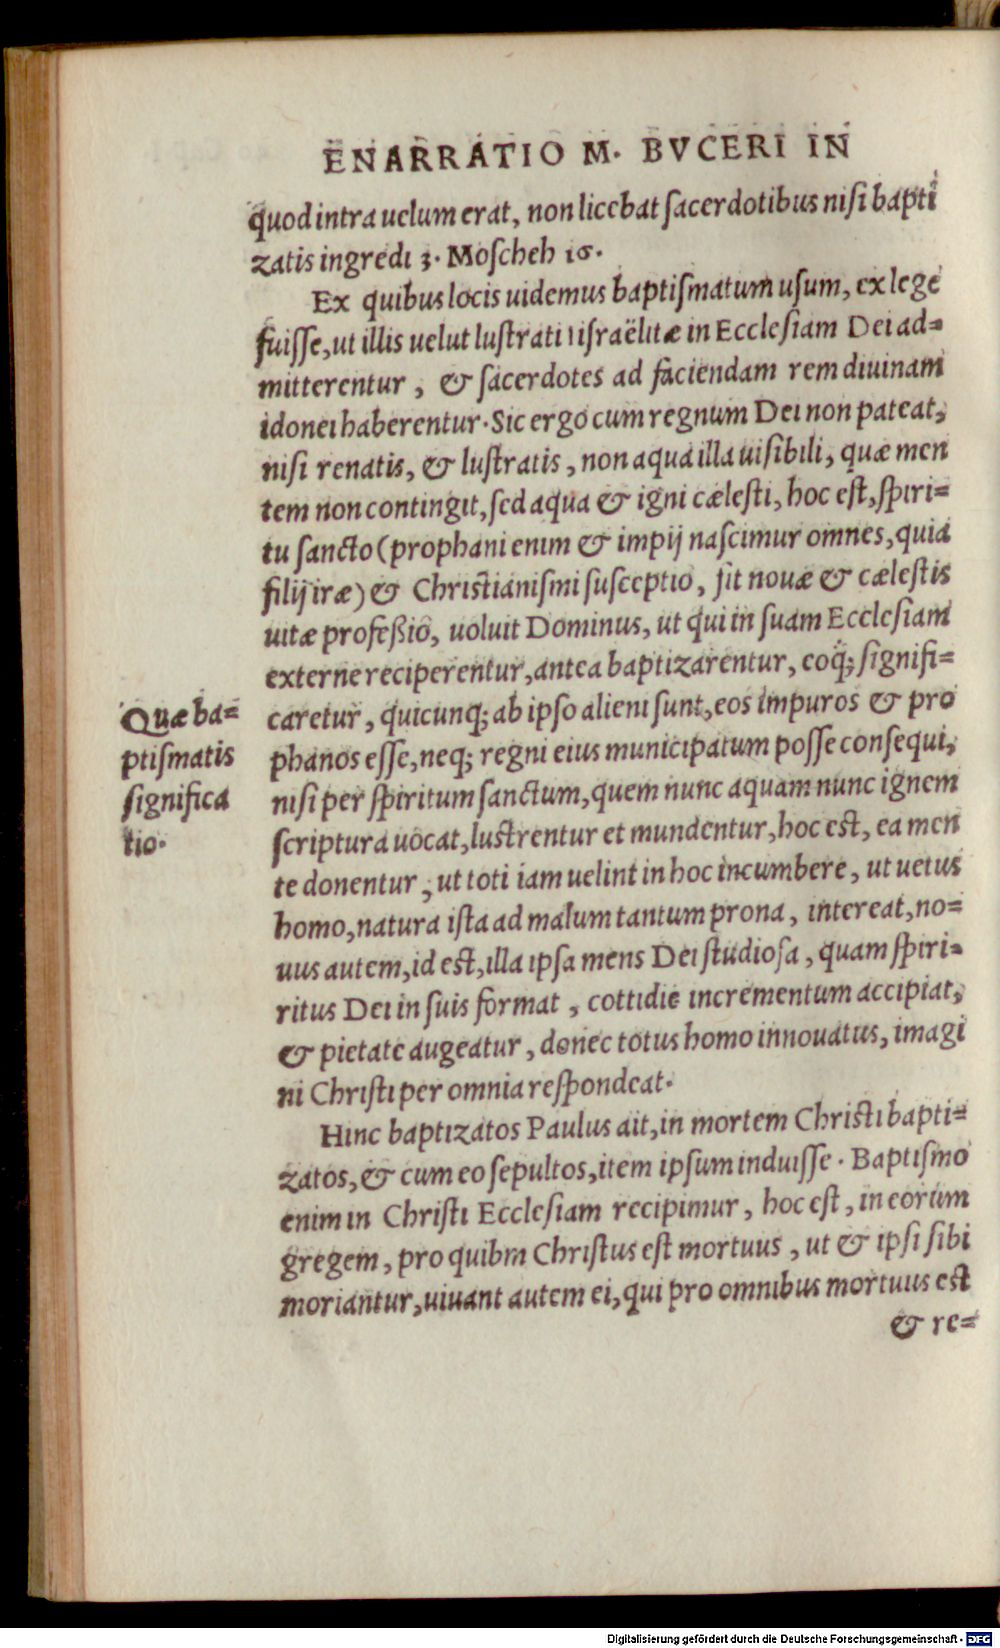 ENARRATIO M. BVCERI IN
quod intra uelum erat, non licebat ſacerdotibus niſi bapti
zatis ingredi 3. Moſcheh 16.
Ex quibus locis uidemus baptiſmatum uſum, ex lege
fuiſſe, ut illis uelut luſtrati iſraëlitæ in Eccleſiam Dei ad=
mitterentur, & ſacerdotes ad faciendam rem diuinam
idonei haberentur. Sic ergo cum regnum Dei non pateat,
niſi renatis, & luſtratis, non aqua illa uiſibili, quæ men
tem non contingit, ſed aqua & igni cæleſti, hoc eſt, ſpiri=
tu ſancto (prophani enim & impij naſcimur omnes, quia
filij iræ) & Chriſtianiſmi ſuſceptio, ſit nouæ & cæleſtis
uitæ profeßio, uoluit Dominus, ut qui in ſuam Eccleſiam
externe reciperentur, antea baptizarentur, eoq; ſignifi=
caretur, quicunq; ab ipſo alieni ſunt, eos impuros & pro
phanos eſſe, neq; regni eius municipatum poſſe conſequi,
niſi per ſpiritum ſanctum, quem nunc aquam nunc ignem
ſcriptura uocat, luſtrentur et mundentur, hoc eſt, ea men
te donentur, ut toti iam uelint in hoc incumbere, ut uetus
homo, natura iſta ad malum tantum prona, intereat, no=
uus autem, id eſt, illa ipſa mens Dei ſtudioſa, quam ſpiri=
ritus Dei in ſuis format, cottidie incrementum accipiat,
& pietate augeatur, donec totus homo innouatus, imagi
ni Chriſti per omnia reſpondeat.
Hinc baptizatos Paulus ait, in mortem Chriſti bapti=
zatos, & cum eo ſepultos, item ipſum induiſſe. Baptiſmo
enim in Chriſti Eccleſiam recipimur, hoc eſt, in eorum
gregem, pro quibus Chriſtus eſt mortuus, ut & ipſi ſibi
moriantur, uiuant autem ei, qui pro omnibus mortuus eſt
& re=
Quæ ba=
ptiſmatis
ſignifica
tio.
Digitalisierung gefördert durch die Deutsche Forschungsgemeinschaft - DFG